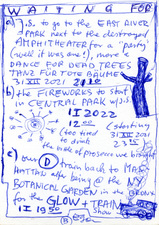 WAITING FOR
a) J.S. to go to the EAST RIVER
PARK next to the destroyed
AMPHITHEATER for a "party"
(well it was one!), more a
DANCE FOR DEAD TREES
TANZ FÜR TOTE BÄUME
31 XII 2021 21
b) the FIREWORKS to start
in CENTRAL PARK w/J.S.
1 I 2022
12 00
(too tired (starting
to drink 31 XII 2021
the bottle of prosecco we brought
c) our D train back to MAN
HATTAN after being @ the NY
BOTANICAL GARDEN in the BRONX
for the GLOW + TRAIN
1 I 19 50 show